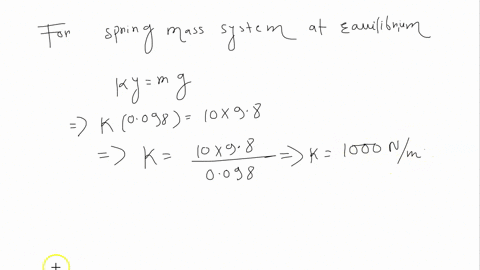 For spring mass system at equilibrium
Ky = mg
=> K (0.098) = 10 × 9.8
=> K = 10 × 9.8 / 0.098 => K = 1000 N/m